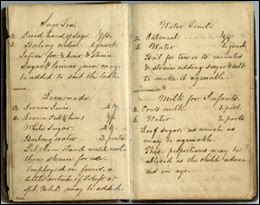 Sage Tea
Dried leaves of Sage ½ oz.
Boiling water 1 quart.
Infuse for ½ hour & strain
Sugar & may
be added to suit the taste.
Lemonade.
Lemon Juice 4
Lemon
White Sugar 4
Boiling water 3 pints
Let them stand until cold
then strain for use.
in fevers, a
little of
may be added.
Water Gruel
Oatmeal
Water
Boil for ten or 15 minutes
& strain adding sugar & salt
to make it agreeable.
Milk for Infants
Cow's milk 1 part
Water 2 parts
Loaf sugar as much as
may be agreeable.
These proportions may be
altered as the child advan-
ces in age.